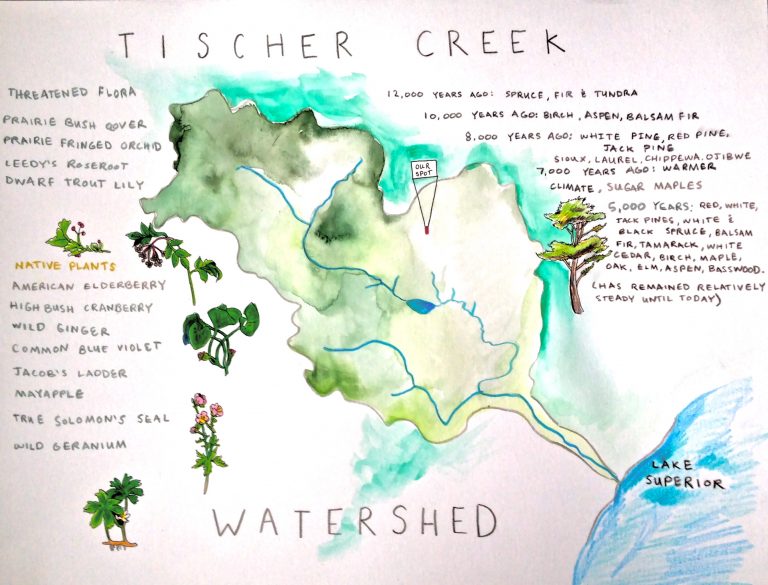 TISCHER CREEK
THREATENED FLORA
PRAIRIE BUSH CLOVER
PRAIRIE FRINGED ORCHID
LEEDY'S ROSEROOT
DWARF TROUT LILY
NATIVE PLANTS
AMERICAN ELDERBERRY
HIGHBUSH CRANBERRY
WILD GINGER
COMMON BLUE VIOLET
JACOB'S LADDER
MAYAPPLE
TRUE SOLOMON'S SEAL
WILD GERANIUM
12,000 YEARS AGO: SPRUCE, FIR & TUNDRA
10,000 YEARS AGO: BIRCH, ASPEN, BALSAM FIR
8,000 YEARS AGO: WHITE PINE, RED PINE,
JACK PINE
SIOUX, LAUREL, CHIPPEWA, OJIBWE
7,000 YEARS AGO: WARMER
CLIMATE, SUGAR MAPLES
5,000 YEARS: RED, WHITE,
JACK PINES, WHITE &
BLACK SPRUCE, BALSAM
FIR, TAMARACK, WHITE
CEDAR, BIRCH, MAPLE,
OAK, ELM, ASPEN, BASSWOOD.
(HAS REMAINED RELATIVELY
STEADY UNTIL TODAY)
OUR
SPOT
LAKE
SUPERIOR
WATERSHED